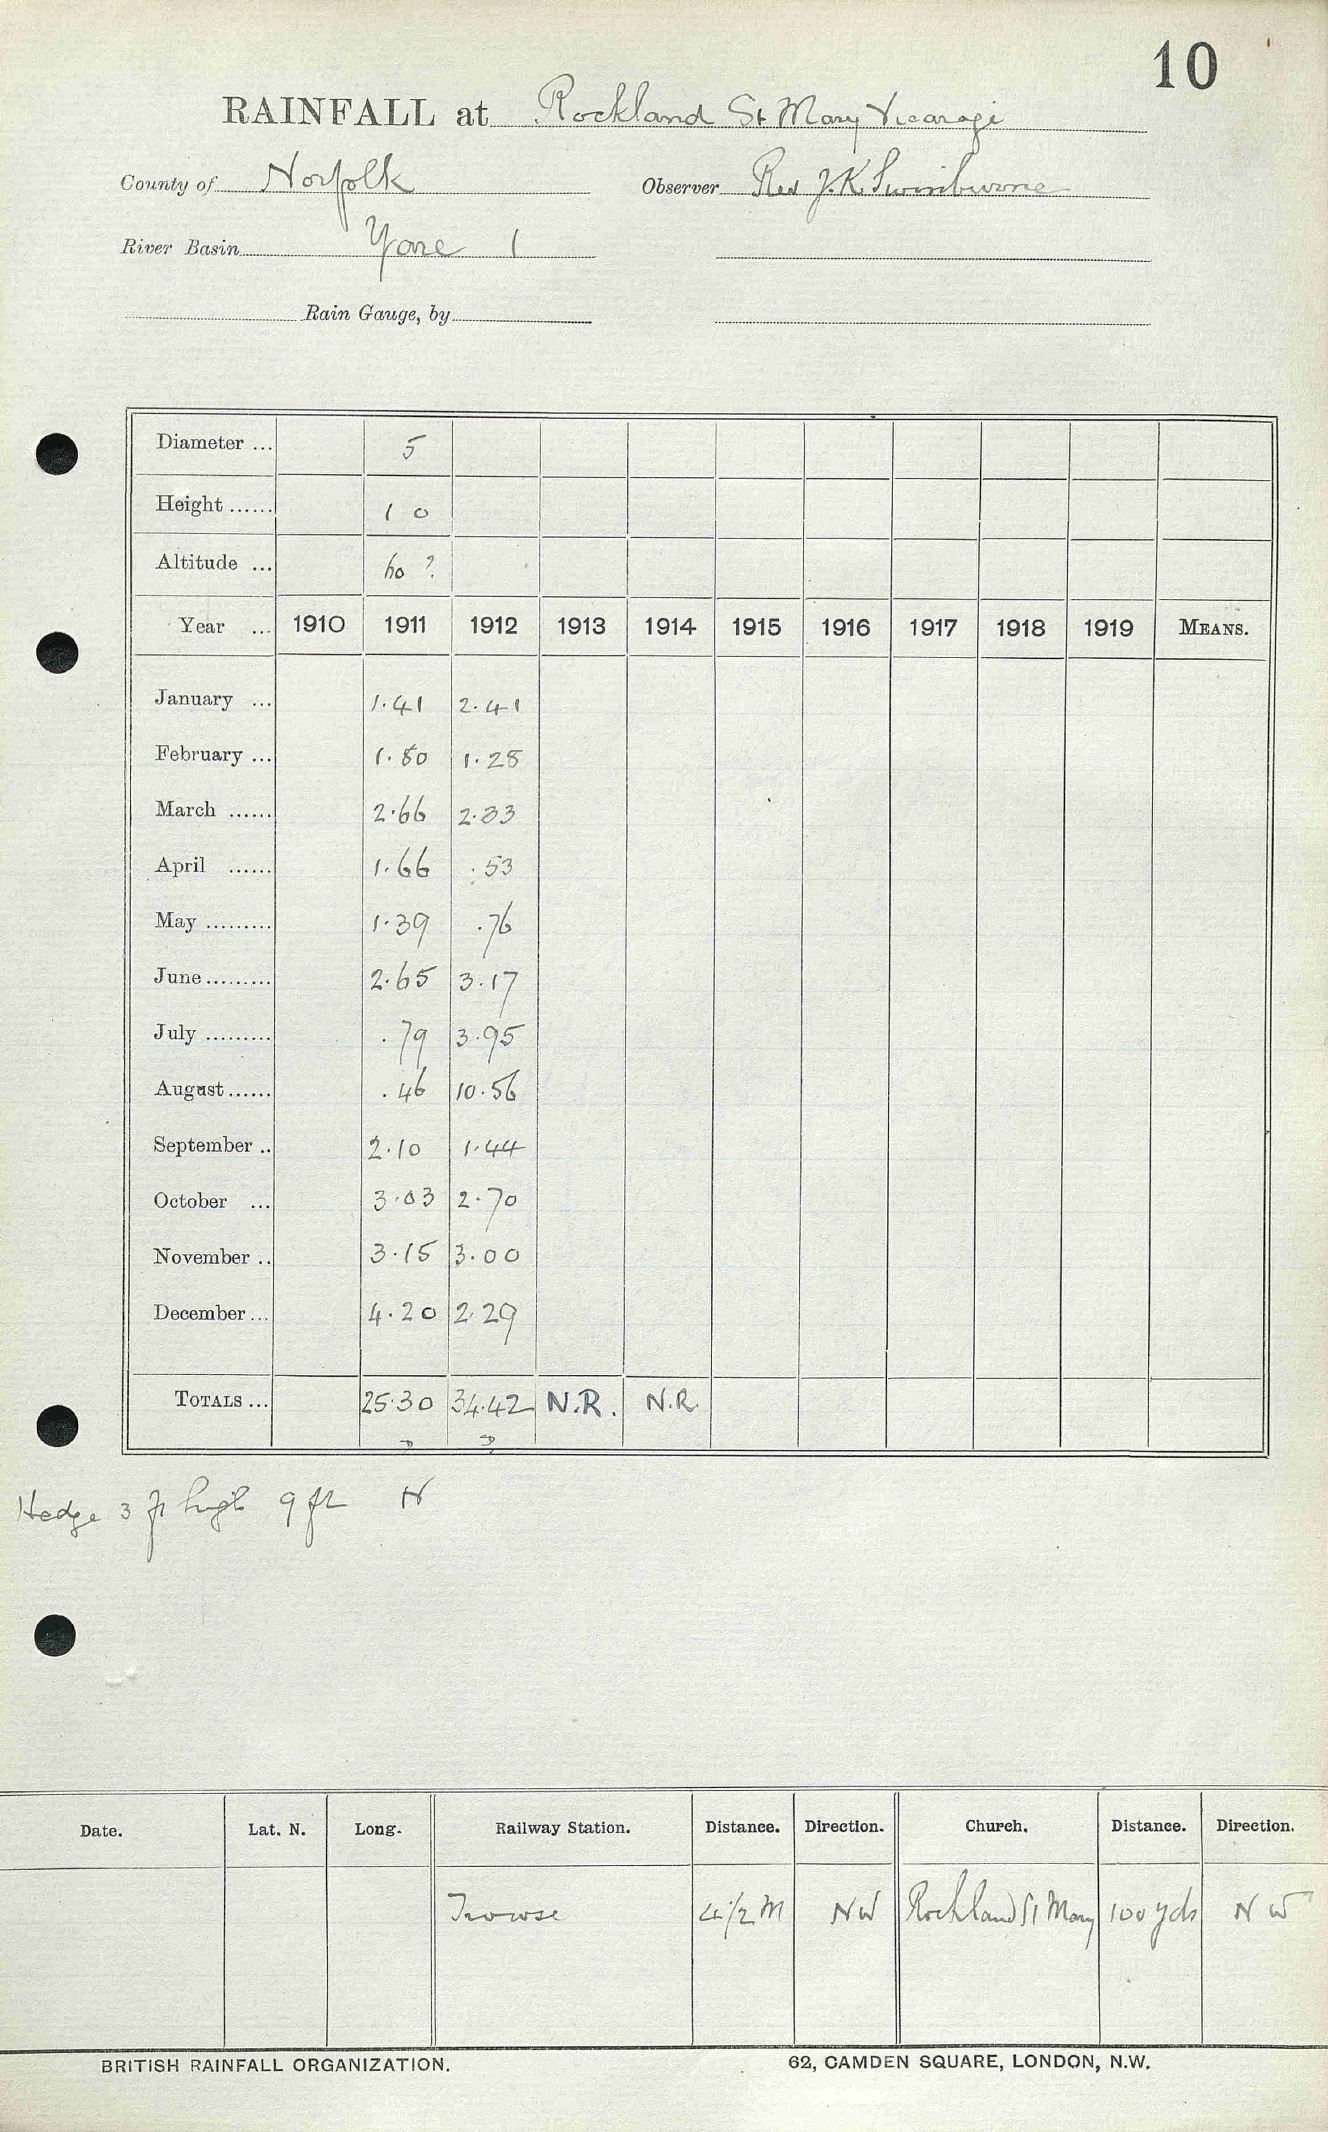 10
RAINFALL at Rockland St Mary Vicarage
County of Norfolk Observer Rev J.K. Swinburne
River Basin Yare 1
Rain Gauge, by
Diameter ... 5
Height ...... 1 0
Altitude ... 60 ?
Year ... 1910 1911 1912 1913 1914 1915 1916 1917 1918 1919 MEANS.
January ... 1.41 2.41
February ... 1.80 1.28
March ...... 2.66 2.33
April ...... 1.66 .53
May ......... 1.39 .76
June ......... 2.65 3.17
July ......... .79 3.95
August ...... .46 10.56
September .. 2.10 1.44
October ... 3.03 2.70
November .. 3.15 3.00
December ... 4.20 2.29
TOTALS ... 25.30 34.42 N.R. N.R.
Hedge 3 ft high 9 ft N
Date. Lat. N. Long. Railway Station. Distance. Direction. Church. Distance. Direction.
Trowse 4 1/2 M NW Rockland St Mary 100 yds NW
BRITISH RAINFALL ORGANIZATION. 62, CAMDEN SQUARE, LONDON, N.W.